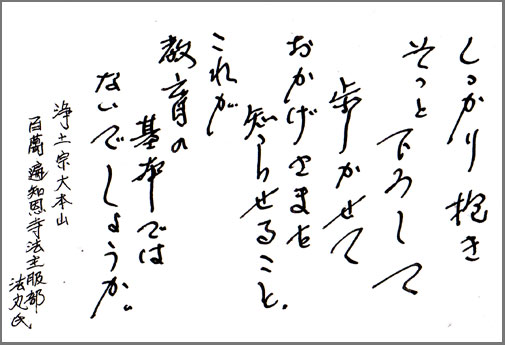 しっかり抱き
そっと下ろして
歩かせて
おかげさまを
知らせること。
これが
教育の
基本では
ないでしょうか。
浄土宗大本山
百萬遍知恩寺法主服部
法丸氏